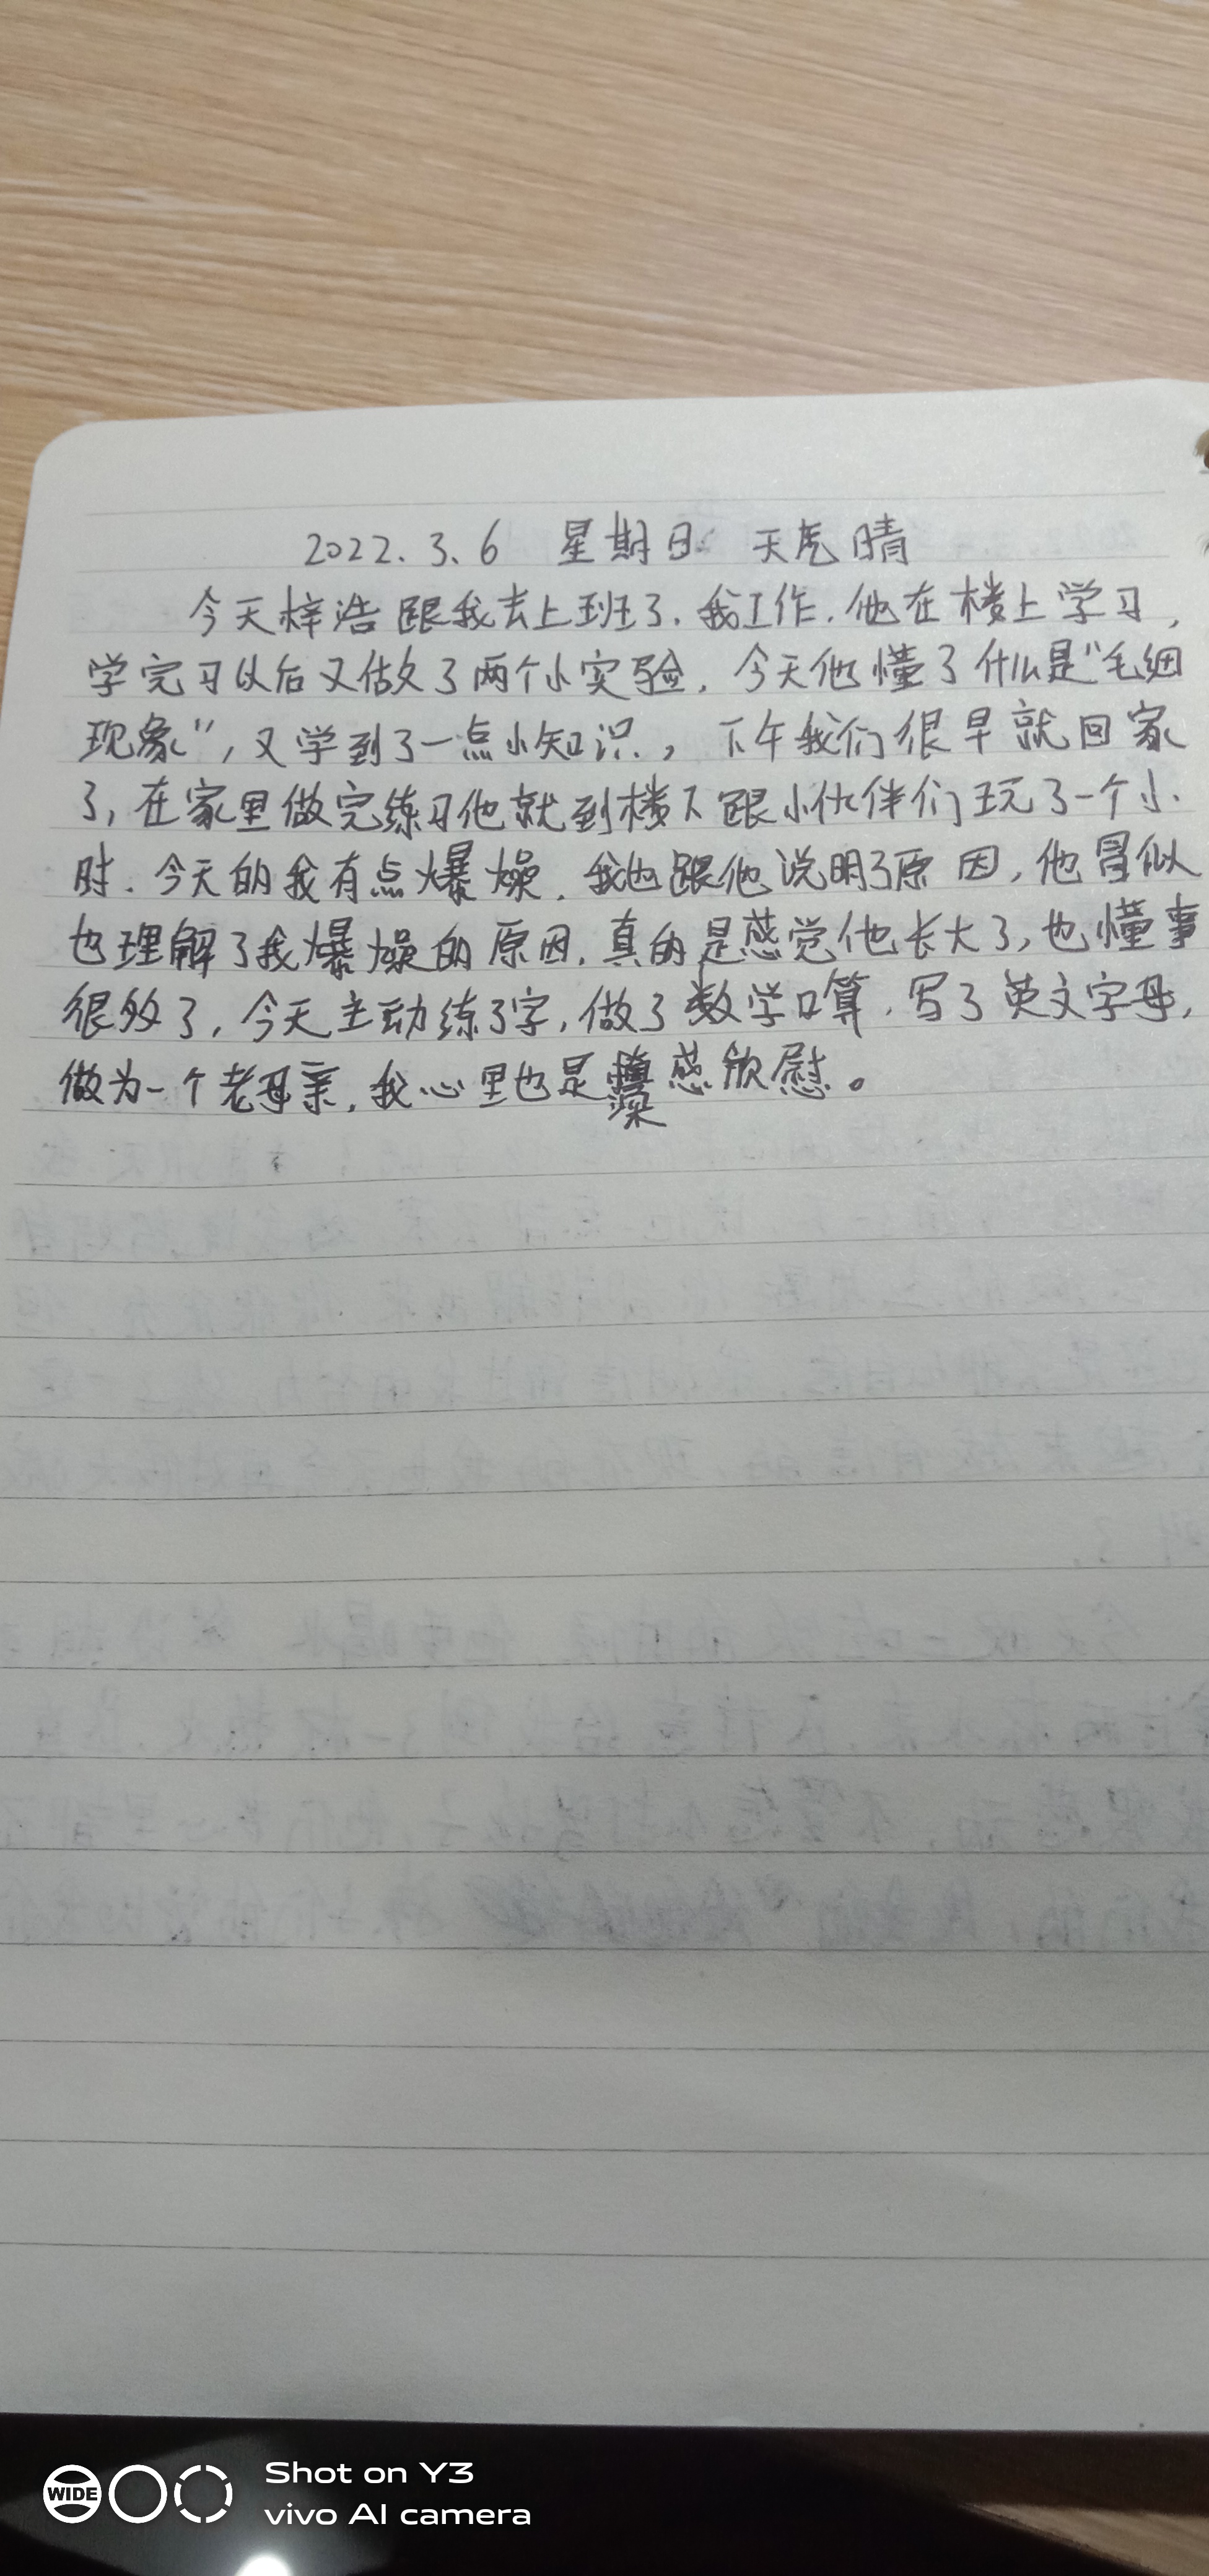 2022.3.6 星期日 天气晴
今天梓浩跟我去上班了.我工作.他在楼上学习,
学完习以后又做了两个小实验.今天他懂了什么是"毛细
现象",又学到了一点小知识,下午我们很早就回家
了,在家里做完练习他就到楼下跟小伙伴们玩了一个小
时.今天的我有点爆燥.我也跟他说明了原因,他冒似
也理解了我爆燥的原因.真的是感觉他长大了,也懂事
很多了,今天主动练了字,做了数学口算.写了英文字母,
做为一个老母亲.我心里也是深感欣慰。
WIDE
Shot on Y3
vivo AI camera